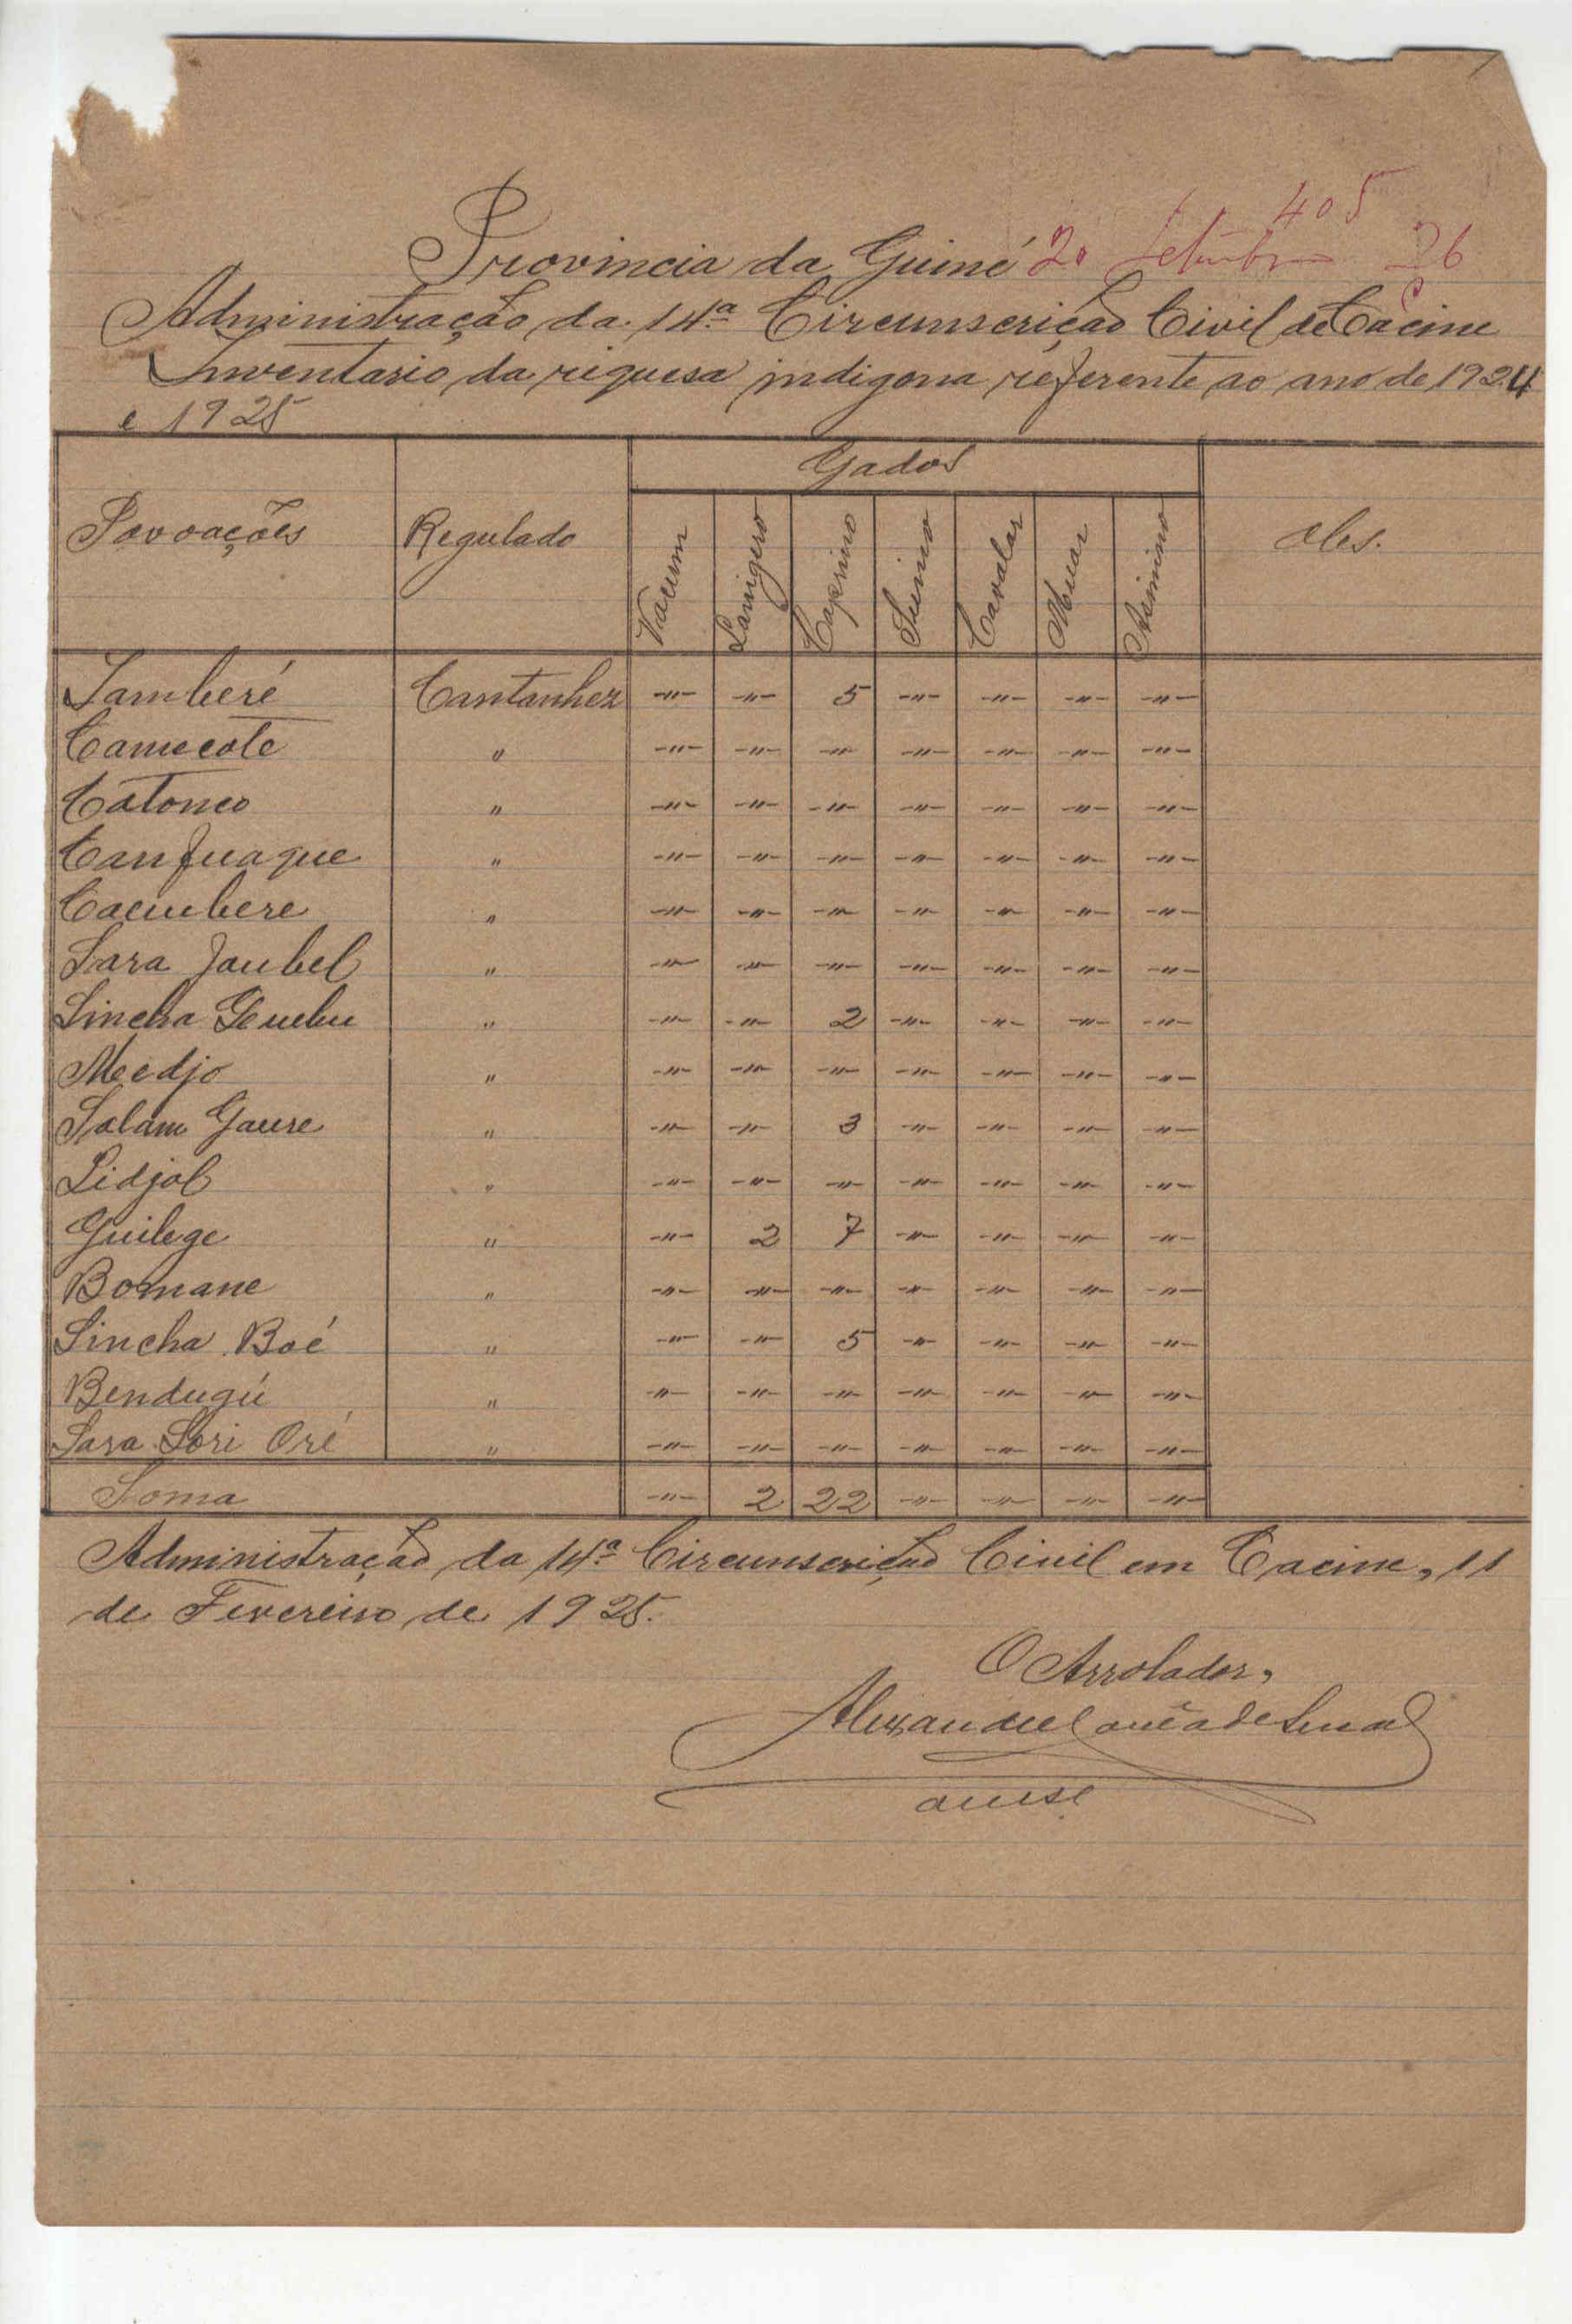 405
Provincia da Guiné 20 Setembro 26
Administração da 14ª Circunscrição Civil de Cacine
Inventario da riquesa indigena referente ao ano de 1924
e 1925
Povoações Regulado Gados Obs.
Vacum Lanigero Caprino Suino Cavalar Muar Asinino
Jamberé Cantanhez -"- -"- 5 -"- -"- -"- -"-
Camecote " -"- -"- -"- -"- -"- -"- -"-
Catonco " -"- -"- -"- -"- -"- -"- -"-
Canfuaque " -"- -"- -"- -"- -"- -"- -"-
Cacumbere " -"- -"- -"- -"- -"- -"- -"-
Sara Jaubel " -"- -"- -"- -"- -"- -"- -"-
Sincha " -"- -"- 2 -"- -"- -"- -"-
Meedjo " -"- -"- -"- -"- -"- -"- -"-
Salam Gaure " -"- -"- 3 -"- -"- -"- -"-
Lidjol " -"- -"- -"- -"- -"- -"- -"-
Guilege " -"- 2 7 -"- -"- -"- -"-
Bomane " -"- -"- -"- -"- -"- -"- -"-
Sincha Boé " -"- -"- 5 -"- -"- -"- -"-
Bendugú " -"- -"- -"- -"- -"- -"- -"-
Sara Sori Oré " -"- -"- -"- -"- -"- -"- -"-
Soma -"- 2 22 -"- -"- -"- -"-
Administração da 14ª Circunscrição Civil em Cacine, 11
de Fevereiro de 1925.
O Arrolador,
Alexandre